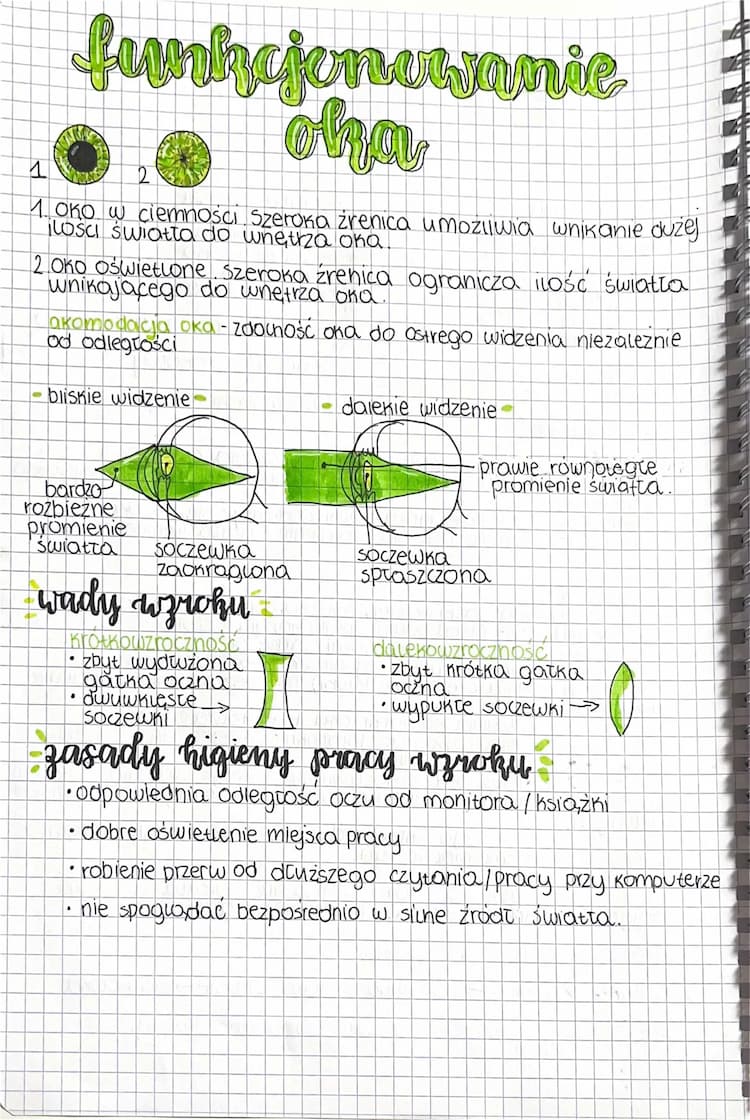 funkcjonowanie
oka
1
2
1. oko w ciemności szeroka źrenica umożliwia wnikanie dużej
ilości światła do wnętrza oka.
2. oko oświetlone. szeroka źrenica ogranicza ilość światła
wnikającego do wnętrza oka.
akomodacja oka - zdolność oka do ostrego widzenia niezależnie
od odległości
- bliskie widzenie -
- dalekie widzenie -
prawie równoległe
promienie światła.
bardzo
rozbieżne
promienie
światła
soczewka
zaokrąglona
soczewka
spłaszczona
wady wzroku
krótkowzroczność
• zbyt wydłużona
gałka oczna
• dwuwklęsłe →
soczewki
dalekowzroczność
• zbyt krótka gałka
oczna
• wypukłe soczewki →
zasady higieny pracy wzroku
• odpowiednia odległość oczu od monitora / książki
• dobre oświetlenie miejsca pracy
• robienie przerw od dłuższego czytania/pracy przy komputerze
• nie spoglądać bezpośrednio w silne źródł światła.